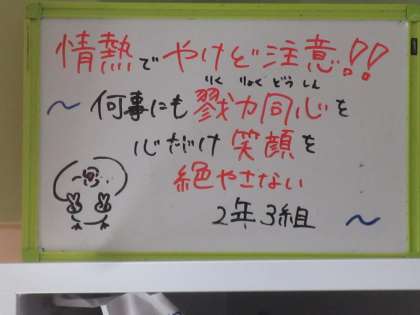 情熱でやけど注意!!
りく りょく どう しん
~何事にも戮力同心を
心だけ笑顔を
絶やさない
2年3組 ~